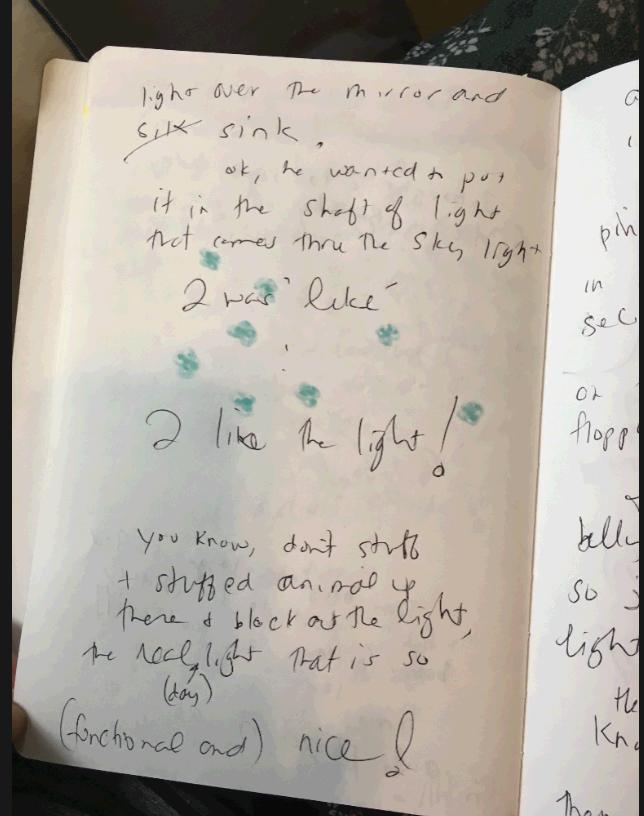 light over the mirror and
silk sink.
ok, he wanted to put
it in the shaft of light
that comes thru the sky light
I was 'like'
I like the light!
you know, don't stuff
a stuffed animal up
there & block out the light,
the real light that is so
(day)
(functional and) nice!
a
pin
in
sec
or
flopp
belly
so
light
the
Kn
Then